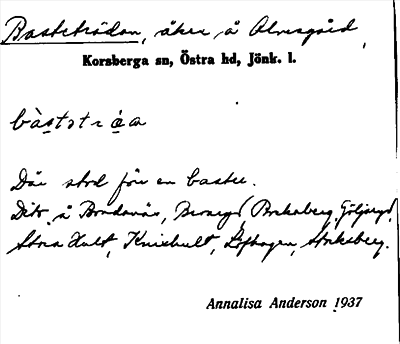 Bastuträdan, åker å Alvesgård,
Korsberga sn, Östra hd, Jönk. l.
bàststrä̀a
Där stod förr en bastu.
Dito å Brudanäs, Brakaberg, Göljeryd,
Stora Hult, Knishult, Löfhagen, Storksberg.
Annalisa Anderson 1937